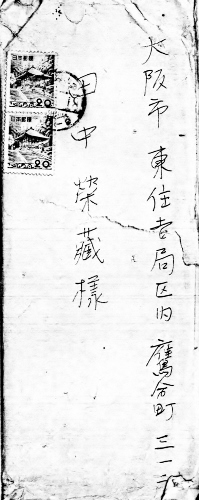 大阪市 東住吉局区内 鷹合町 三一
田中 栄蔵様
日本郵便
20
日本郵便
20